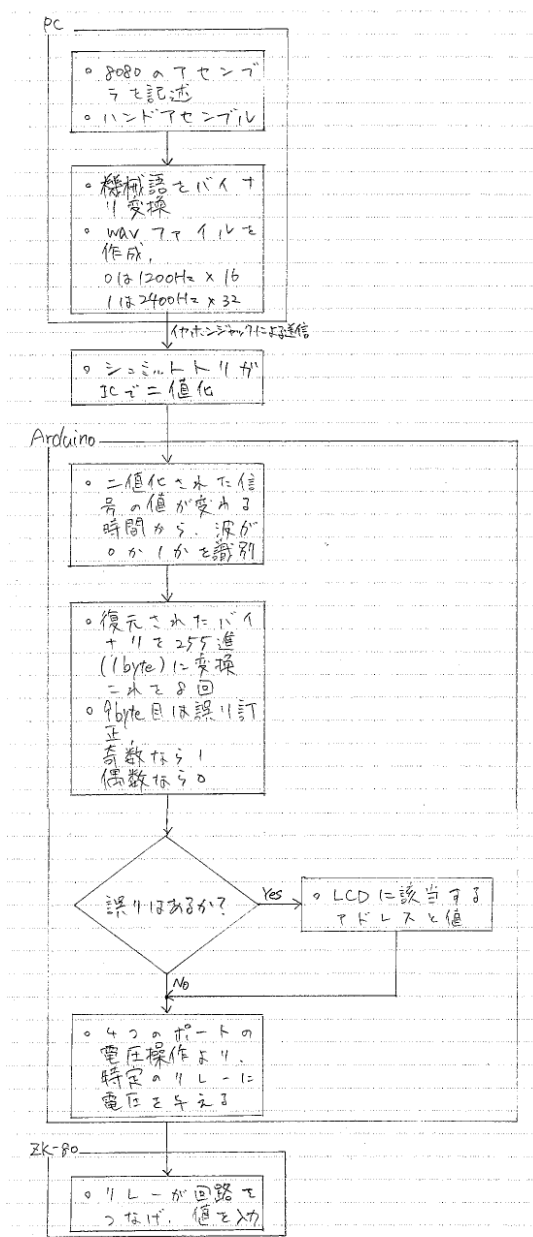 PC
○ 8080のアセンブ
ラを記述
○ ハンドアセンブル
○ 機械語をバイナ
リ変換
○ wavファイルを
作成.
0は1200Hz×16
1は2400Hz×32
イヤホンジャックによる送信
○ シュミットトリガ
ICで二値化
Arduino
○ 二値化された信
号の値が変わる
時間から、波が
0か1かを識別
○ 復元されたバイ
ナリを255進
(1byte)に変換
これを8回
○ 9byte目は誤り訂
正.
奇数なら1
偶数なら0
誤りはあるか?
Yes
○ LCDに該当する
アドレスと値
No
○ 4つのポートの
電圧操作より、
特定のリレーに
電圧を与える
ZK-80
○ リレーが回路を
つなげ、値を入力